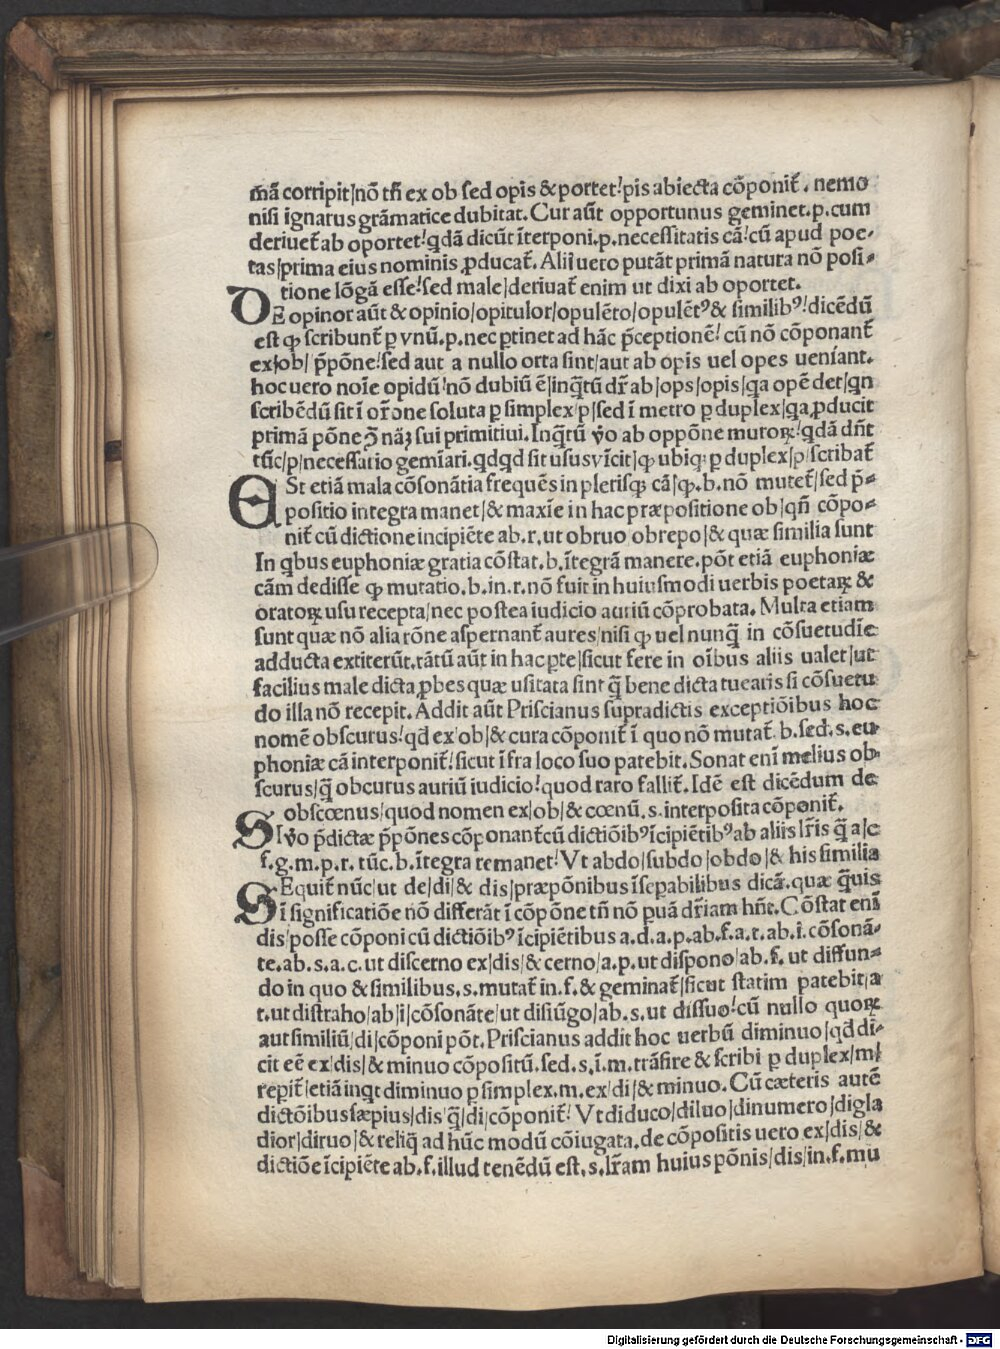 m̄ā corripit/nō tn̄ ex ob sed opis & portet!pis abiecta cōponit̄. nemo
nisi ignarus grāmatice dubitat. Cur aūt opportunus geminet.p.cum
deriuet̄ ab oportet!qdā dicūt īterponi.p.necessitatis cā!cū apud poe-
tas/prima eius nominis ꝓducat̄. Alii uero putāt primā natura nō posi-
tione lōgā esse!sed male/deriuat̄ enim ut dixi ab oportet.
DE opinor aūt & opinio/opitulor/opulēto/opulētꝰ& similibꝰ!dicēdū
est ꝙ scribunt̄ ꝑ vnū.p.nec ꝑtinet ad hāc p̄ceptionē! cū nō cōponant̄
ex/ob/ p̄pōne!sed aut a nullo orta sint/aut ab opis uel opes ueniant.
hoc uero noīe opidū!nō dubiū ē/inq̄tū dr̄ ab/ops/opis/qa opē det/qn
scribēdū sit ī or̄one soluta ꝑ simplex/p/sed ī metro ꝑ duplex/qa ꝓducit
primā pōne ↄ̄ nāꝫ sui primitiui. Inq̄tū v̄o ab oppōne muroꝝ!qdā dn̄t
tūc/p/necessario gemīari.qdqd sit usus vīcit/ꝙ ubiqꝫ ꝑ duplex/p/scribat̄
ESt etiā mala cōsonātia frequēs in plerisqꝫ cā/ꝙ.b.nō mutet̄/sed p̄-
positio integra manet/& maxīe in hac præpositione ob/qn̄ cōpo-
nit̄ cū dictione incipiēte ab.r.ut obruo obrepo/& quæ similia sunt
In qbus euphoniæ gratia cōstat.b.ītegrā manere.pōt etiā euphoniæ
cām dedisse ꝙ mutatio.b.in.r.nō fuit in huiusmodi uerbis poetaꝝ &
oratoꝝ usu recepta/nec postea iudicio auriū cōprobata. Multa etiam
sunt quæ nō alia rōne aspernant̄ aures/nisi ꝙ uel nunq̄ in cōsuetudīe
adducta extiterūt.tātū aūt in hac ꝑte/sicut fere in oībus aliis ualet/ut
facilius male dicta ꝓbes quæ usitata sint q̄ bene dicta tuearis si cōsuetu
do illa nō recepit. Addit aūt Priscianus supradictis exceptiōibus hoc
nomē obscurus!qd ex/ob/& cura cōponit̄ ī quo nō mutat̄ b.sed.s.eu-
phoniæ cā interponit̄!sicut īfra loco suo patebit. Sonat enī melius ob-
scurus/q̄ obcurus auriū iudicio!quod raro fallit̄. Idē est dicēdum de
obscœnus/quod nomen ex/ob/& cœnū.s.interposita cōponit̄.
SI v̄o p̄dictæ p̄pōnes cōponant̄cū dictiōibꝰīcipiētibꝰab aliis lr̄is q̄ a/c
f.g.m.p.r. tūc.b.ītegra remanet!Vt abdo/subdo/obdo/& his similia
SEquit̄ nūc/ut de/di/& dis/præpōnibus īsepabilibus dicā.quæ q̄uis
ī significatiōe nō differāt ī cōpōne tn̄ nō ꝑuā dr̄iam hn̄t. Cōstat enī
dis/posse cōponi cū dictiōibꝰ īcipiētibus a.d.a.p.ab.f.a.t.ab.i.cōsonā-
te.ab.s.a.c.ut discerno ex/dis/& cerno/a.p.ut dispono/ab.f. ut diffun-
do in quo & similibus.s.mutat̄ in.f.& geminat̄/sicut statim patebit/a
t.ut distraho/ab/i/cōsonāte/ut disiūgo/ab.s.ut dissuo!cū nullo quoꝝ
aut similiū/di/cōponi pōt. Priscianus addit hoc uerbū diminuo/qd di-
cit eē ex/dis/& minuo cōpositū.sed.s.ī.m.trāsire & scribi ꝑ duplex/m/
reperit̄/etiā inqt diminuo ꝑ simplex.m.ex/di/& minuo. Cū cæteris autē
dictōibus sæpius/dis/q̄/di/cōponit̄! Vt diduco/diluo/dinumero/digla
dior/diruo/& reliq̄ ad hūc modū cōiugata.de cōpositis uero ex/dis/&
dictiōe īcipiēte ab.f.illud tenēdū est.s.lr̄am huius pōnis/dis/in.f.mu
Digitalisierung gefördert durch die Deutsche Forschungsgemeinschaft - DFG